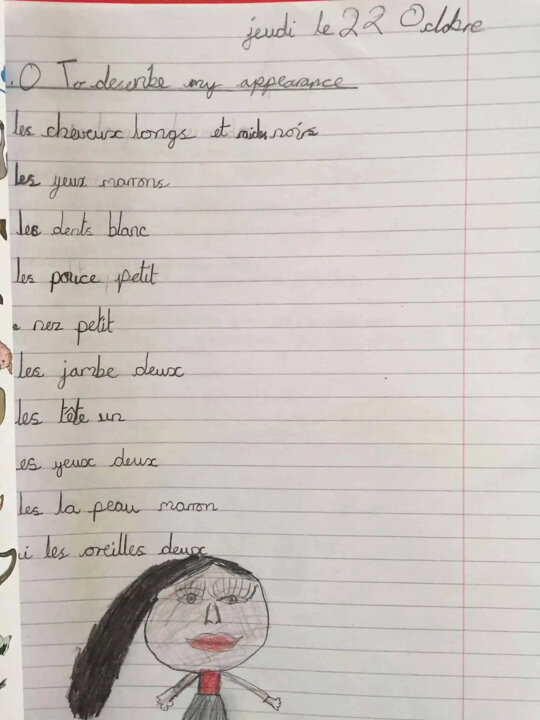 jeudi le 22 Octobre
O To describe my appearance
les cheveux longs et raides noirs
les yeux marrons
les dents blanc
les pouce petit
nez petit
les jambe deux
les tête un
es yeux deux
les la peau marron
i les oreilles deux